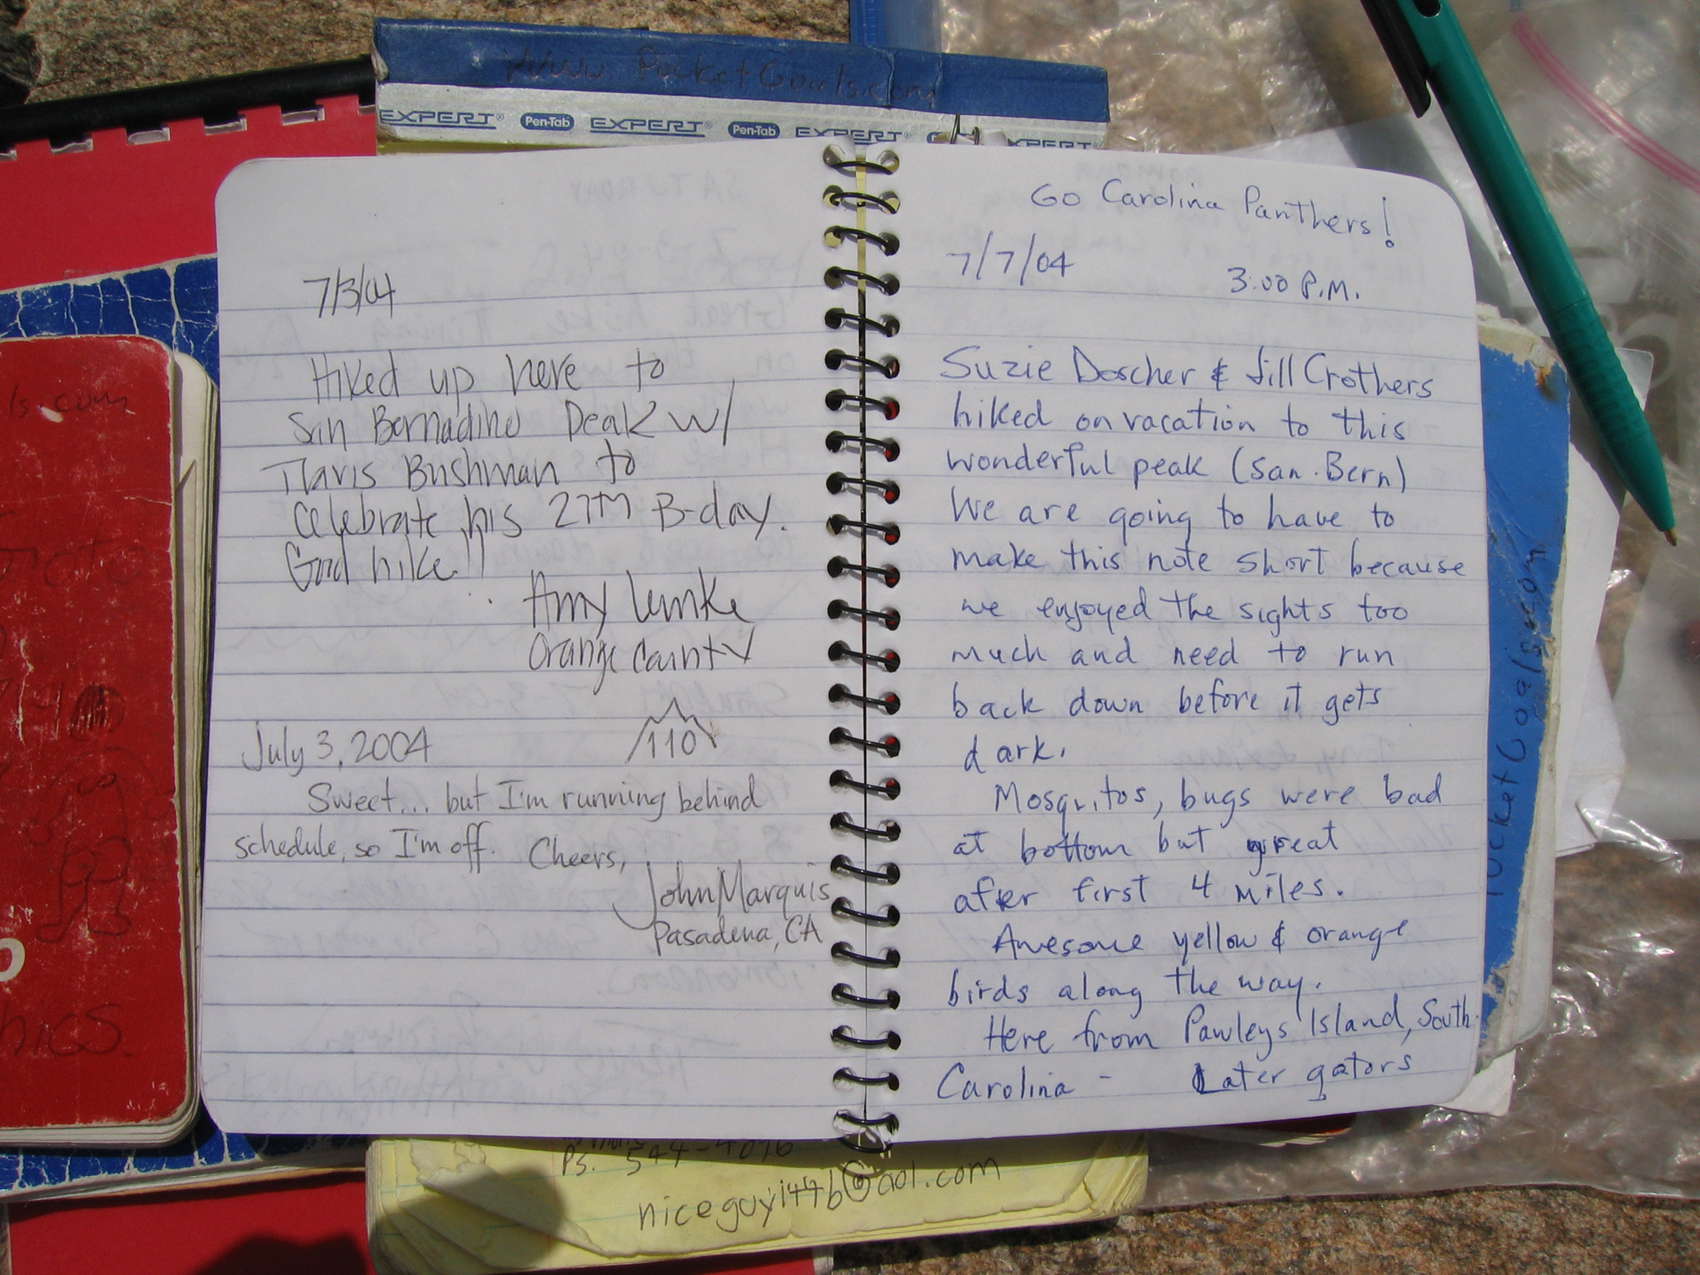 www.PocketGoals.com
EXPERT Pen-Tab EXPERT Pen-Tab EXPERT EXPERT
7/3/04
Hiked up here to
San Bernadino Peak w/
Travis Bushman to
celebrate his 27TH B-day.
Good hike!!
Amy Lemke
Orange County
July 3, 2004
110
Sweet... but I'm running behind
schedule, so I'm off. Cheers,
John Marquis
Pasadena, CA
Go Carolina Panthers!
7/7/04
3:00 P.M.
Suzie Doscher & Jill Crothers
hiked on vacation to this
wonderful peak (San. Bern)
We are going to have to
make this note short because
we enjoyed the sights too
much and need to run
back down before it gets
dark.
Mosquitos, bugs were bad
at bottom but great
after first 4 miles.
Awesome yellow & orange
birds along the way.
Here from Pawleys Island, South
Carolina - Later gators
P.S.
544-4096
@aol.com